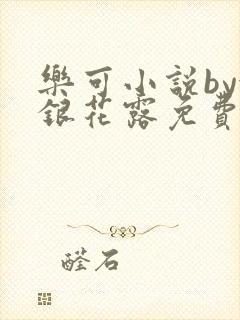 樂可小説by
銀花露免費
醛石